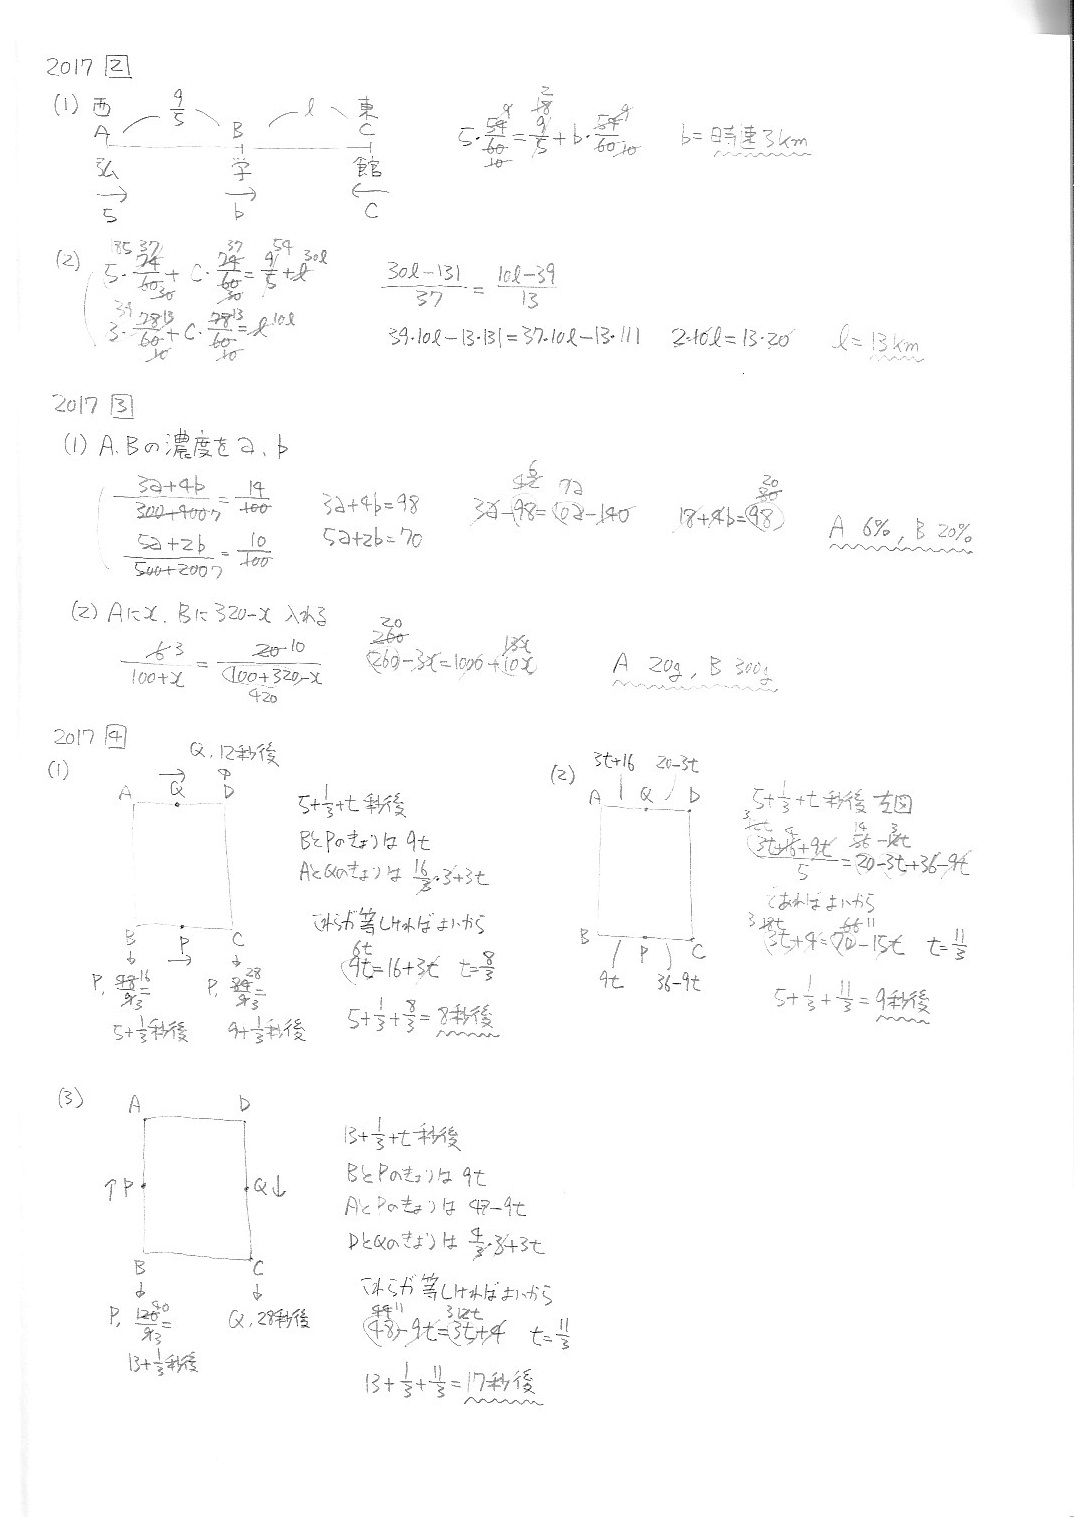 2017 2
(1) 西 9/5 l 東
A B C
弘 学 館
→ → ←
5 b C
5・54/60 = 9/5 + b・54/60 b=時速3km
(2) 5・74/60 + C・74/60 = 9/5 + l
3・78/60 + C・78/60 = l
(30l-131)/37 = (10l-39)/13
39・10l-13・131=37・10l-13・111 2・10l=13・20 l=13km
2017 3
(1) A,Bの濃度をa、b
(3a+4b)/(300+400) = 14/100
(5a+2b)/(500+200) = 10/100
3a+4b=98
5a+2b=70
3a-98=10a-140 18+4b=98 A 6%, B 20%
(2) Aにx、Bに320-x 入れる
6/(100+x) = 20/(100+320-x)
1260-3x=1000+10x A 20g, B 300g
2017 4
(1) Q, 12秒後
A → Q D
B P → C
P, 48/9 = 16/3 P, 84/9 = 28/3
5+1/3秒後 9+1/3秒後
5+1/3+t秒後
BとPのきょりは 9t
AとQのきょりは 16/3・3+3t
これらが等しければよいから
9t=16+3t t=8/3
5+1/3+8/3=8秒後
(2) 3t+16 20-3t
A Q D
B P C
9t 36-9t
5+1/3+t秒後 左図
(3t+16+9t)/5 = 20-3t+36-9t
であればよいから
3t+4=70-15t t=11/3
5+1/3+11/3=9秒後
(3) A D
↑P Q↓
B C
P, 120/9 = 40/3 Q, 28秒後
13+1/3秒後
13+1/3+t秒後
BとPのきょりは 9t
AとPのきょりは 48-9t
DとQのきょりは 4/3・3+3t
これらが等しければよいから
48-9t=3t+4 t=11/3
13+1/3+11/3=17秒後